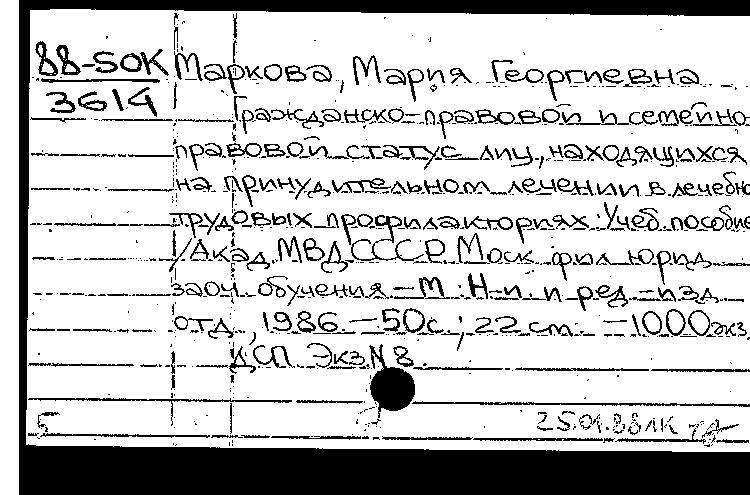 88-50К Маркова, Мария Георгиевна
3614
Гражданско-правовой и семейно-
правовой статус лиц, находящихся
на принудительном лечении в лечебно
трудовых профилакториях: Учеб. пособие
/Акад. МВД СССР. Моск. фил. юрид.
заоч. обучения. – М.: Н-и. и ред.-изд.
отд., 1986. – 50с.; 22 см. – 1000 экз.
ДСП Экз. N 8.
5 25.01.88 ЛК